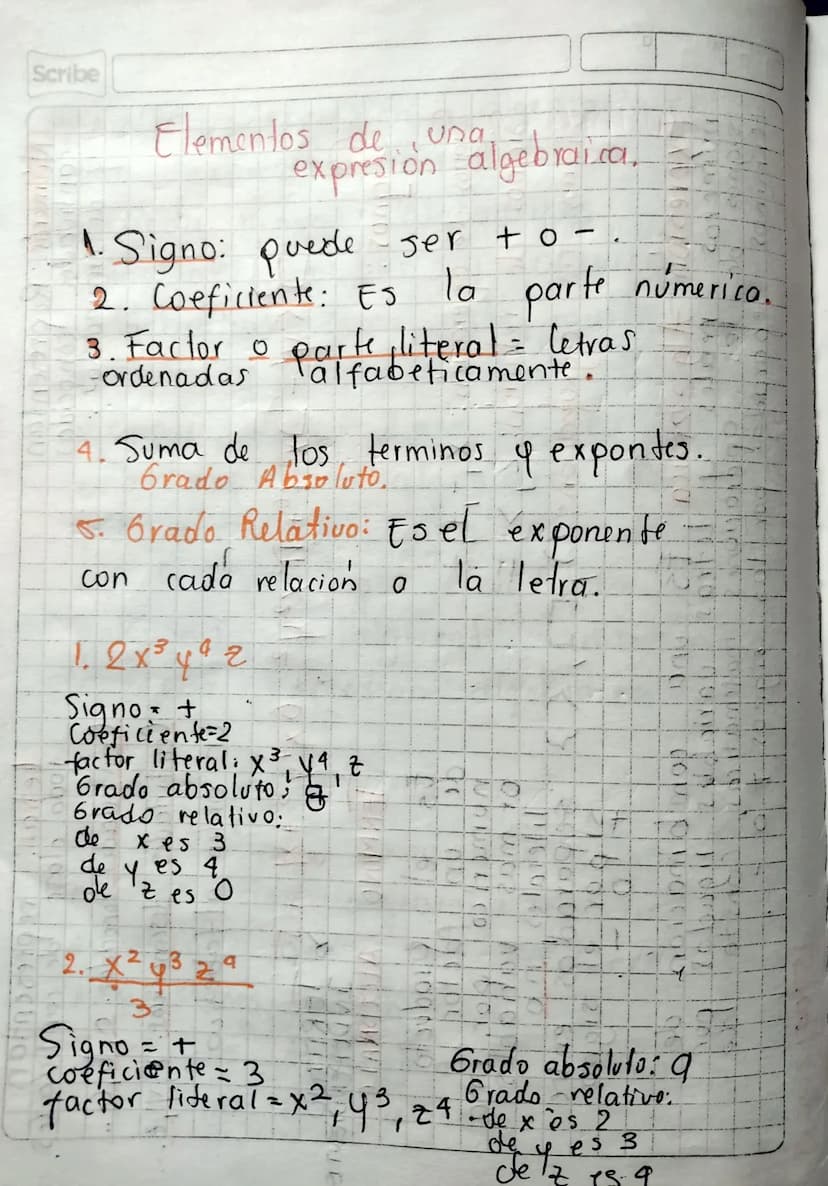 Scribe
Elementos de una
expresión algebraica.
1. Signo: puede ser + o - .
2. Coeficiente: Es la parte númerica.
3. Factor o parte literal = letras
ordenadas alfabeticamente.
4. Suma de los terminos y expontes.
Grado Absoluto.
5. Grado Relativo: Es el exponente
con cada relación o la letra.
1. 2x³y⁴z
Signo = +
Coeficiente=2
factor literal: x³, y⁴, z
Grado absoluto: 8
Grado relativo:
de x es 3
de y es 4
de z es 0
2. x²y³z⁴
3
Signo = +
coeficiente = 3
factor literal = x², y³, z⁴
Grado absoluto: 9
Grado relativo:
de x es 2
de y es 3
de z es 4